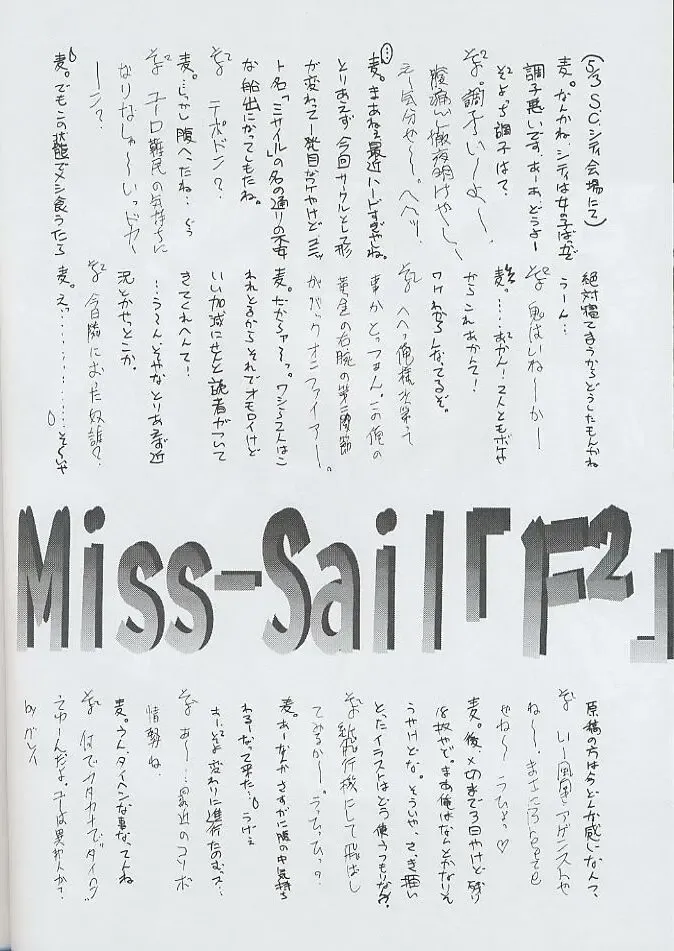 (5/3 S.C.シティ会場にて)
麦。なんかね、シティは女の子ばっかで
調子悪いです。あーあ、どうよー
そよち調子は?
そ。調子い〜よ〜、
腹痛いし徹夜明けやしー
え〜気分せ〜。へへッ!
麦。まあねえ最近ハードすぎやね。
とりあえず今回サークルとして形
が変わって一発目なワケやけど、
ト名「ミサイル」の名の通りの不安
な船出になってしもたね。
そ テポドン?
麦。しかし腹へったね…どっ
そ ユーロ難民の気持ちに
なりなしゃ〜いっドカー
ーン?
麦。でもこの状態でメシ食うたら
絶対寝てまうからどうしたもんかね
うーん…
そ 鬼はいね〜か〜
麦。…あかん!2人ともボケや
からこれあかんて!
ワケわからんなってるぞ。
そ へへっ俺様が笑って
事かとっつぁん。この俺の
黄金の右腕の第二関節
がバックオニファイアー。
麦。だからァ〜っ。ワシら2人はこ
われとるからそれでオモロイけど
いい加減にせんと読者がついて
きてくれへんて!
…う〜ん、そやなとりあえず近
況とかやっとこか。
そ 今日隣におった奴誰?
麦。え…………そ〜いや
Miss-Sail「F²」
原稿の方は今どんな感じなんて、
そ い〜風風とアゲンストや
ね〜、まさにBreeze
やね〜うひょっ♡
麦。後、〆切まで3日やけど残り
18枚やで。まあ俺はなんとかなりそ
うやけどな。そういや、さっき描い
とったイラストはどう使うつもりなん?
そ 紙飛行機にして飛ばし
てみるか〜。うっひっひっ。
麦。あーなんかさすがに腹の中気持ち
わる〜なって来た…うげぇ
あーそよ変わりに進行たのむっス…
そ あ〜…最近のコソボ
情勢ね、
麦。うん、タイヘンな事なってんね
そ 何でカタカナで“タイヘン”
by ガレイ